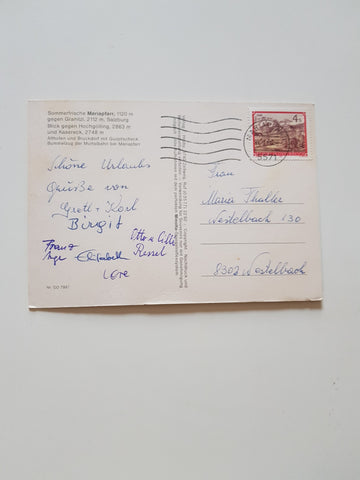 Sommerfrische Mariapfarr, 1120 m
gegen Granitzl, 2112 m, Salzburg
Blick gegen Hochgolling, 2863 m
und Kasereck, 2748 m
Althofen und Bruckdorf mit Golzschech
Bummelzug der Murtalbahn bei Mariapfarr
Schöne Urlaubs
Grüße von
Gretl + Karl
Birgit
Franz
Inge Elisabeth
Otto u. Cilli
Ressel
Lore
4 S
5571
Frau
Maria Thaller
Nestelbach 130
8302 Nestelbach